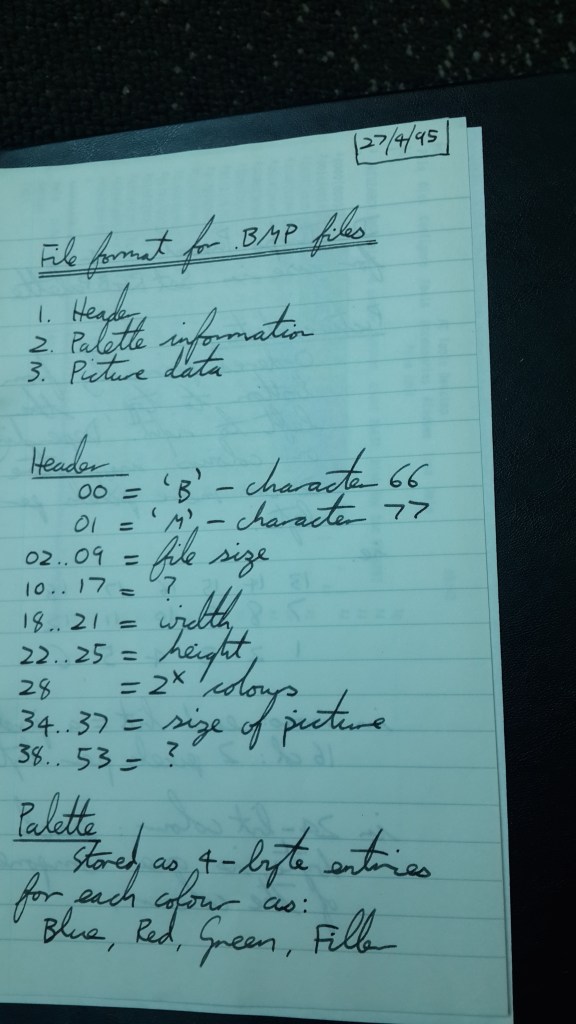 27/4/95
File format for .BMP files
1. Header
2. Palette information
3. Picture data
Header
00 = 'B' - character 66
01 = 'M' - character 77
02..09 = file size
10..17 = ?
18..21 = width
22..25 = height
28 = 2ˣ colours
34..37 = size of picture
38..53 = ?
Palette
Stored as 4-byte entries
for each colour as:
Blue, Red, Green, Filler